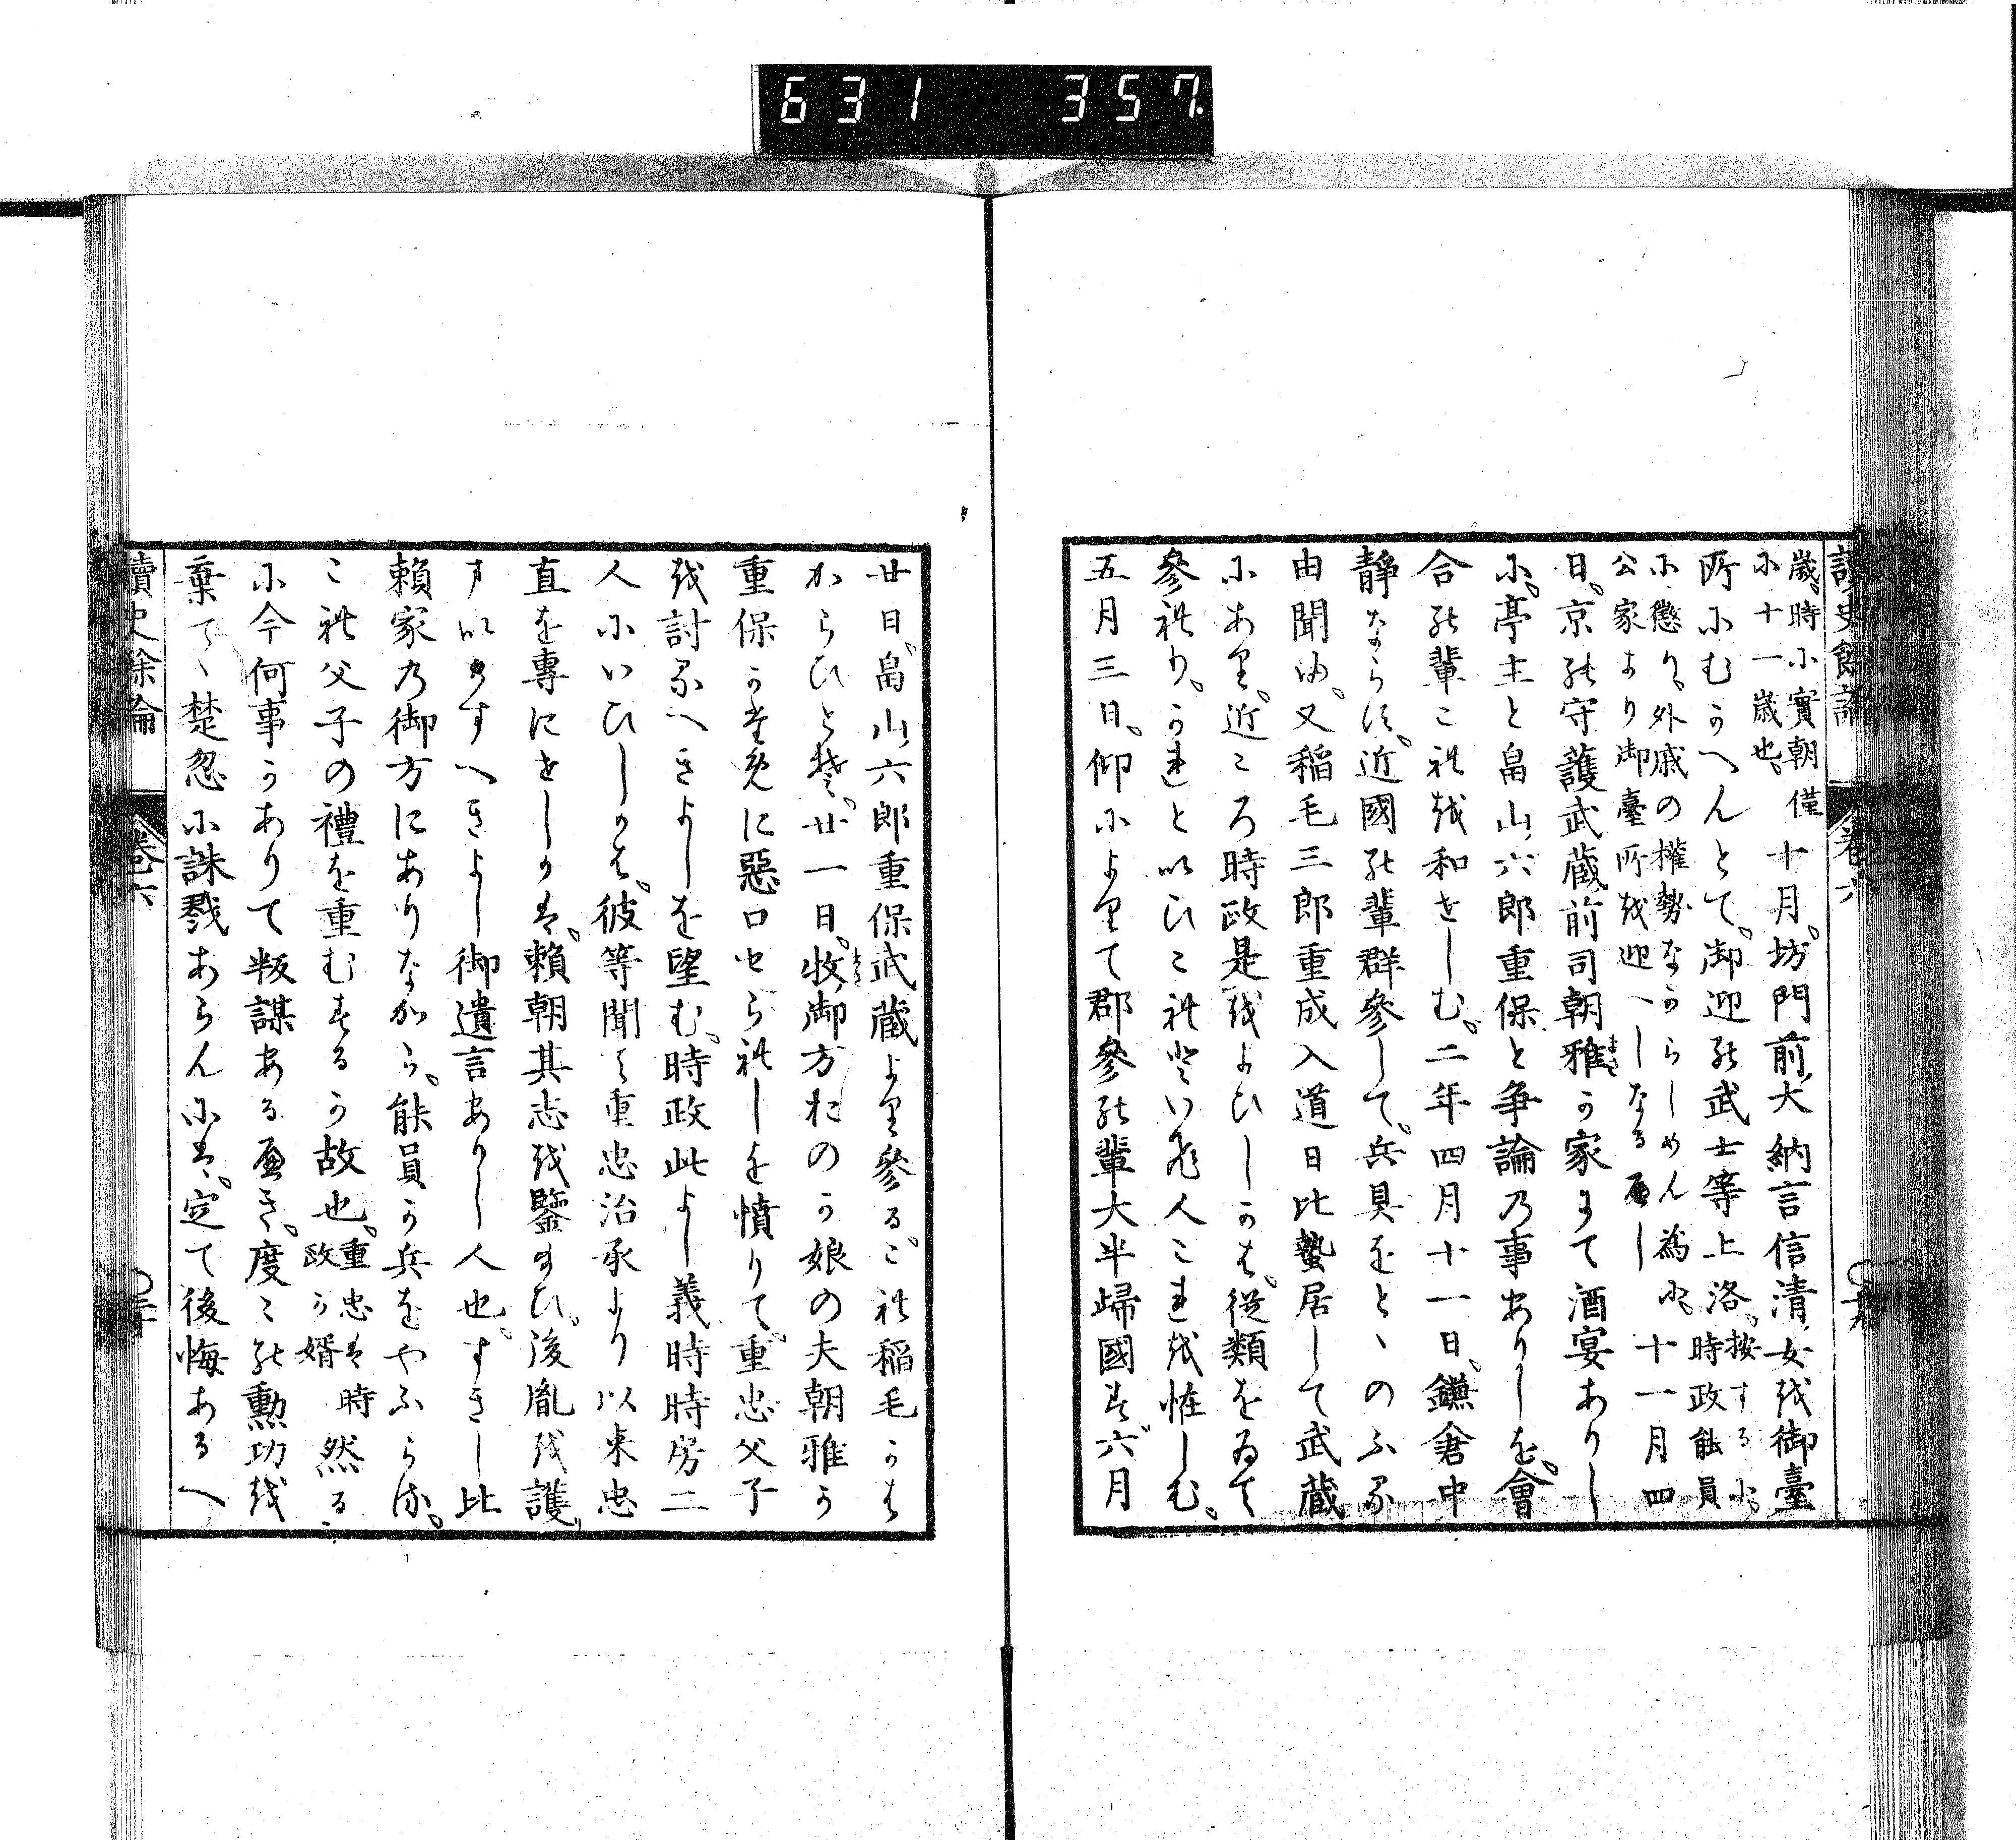 631 357
讀史餘論 卷六 十九
歳時に實朝僅
に十一歳也 十月坊門前大納言信清女を御臺
所にむかへんとて御迎の武士等上洛 按するに
時政能員
に懲り外戚の權勢なからしめん為に
公家より御臺所を迎へしなるへし 十一月四
日京の守護武蔵前司朝雅か家にて酒宴ありし
に亭主と畠山六郎重保と争論の事ありしを會
合の輩これを和せしむ二年四月十一日鎌倉中
静ならす近國の輩群參して兵具をとゝのふる
由聞ゆ又稲毛三郎重成入道日比蟄居して武蔵
にあり近ころ時政是をよひしかは從類をゐて
參れりかれといひこれといひ人これを恠しむ
五月三日仰によりて郡參の輩大半歸國す六月
廿日畠山六郎重保武蔵より參るこれ稲毛かは
からひとそ廿一日牧御方おのか娘の夫朝雅か
重保かために惡口せられしを憤りて重忠父子
を討るへきよしを望む時政此よし義時時房二
人にいひしかは彼等聞て重忠治承より以来忠
直を專にせしかは賴朝其志を鑒給ひ後胤を護
すへきよし御遺言ありし人也すきし比
賴家の御方にありなから能員か兵をやふらる
これ父子の禮を重むするか故也 重忠は時
政か婿 然る
に今何事かありて叛謀あるへき度々の勲功を
棄てゝ楚忽に誅戮あらんには定て後悔あるへ
讀史餘論 卷六 二十